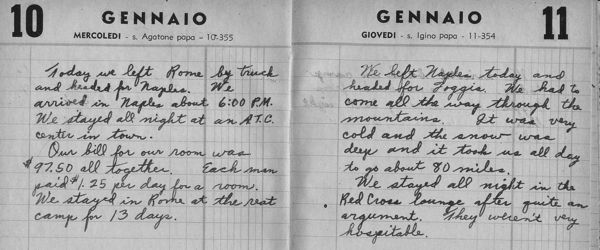 10 GENNAIO
MERCOLEDI - s. Agatone papa - 10-355
Today we left Rome by truck
and headed for Naples. We
arrived in Naples about 6:00 P.M.
We stayed all night at an A.T.C.
center in town.
Our bill for our room was
$97.50 all together. Each man
paid $1.25 per day for a room.
We stayed in Rome at the rest
camp for 13 days.
GENNAIO 11
GIOVEDI - s. Igino papa - 11-354
We left Naples today and
headed for Foggia. We had to
come all the way through the
mountains. It was very
cold and the snow was
deep and it took us all day
to go about 80 miles.
We stayed all night in the
Red Cross lounge after quite an
argument. They weren't very
hospitable.